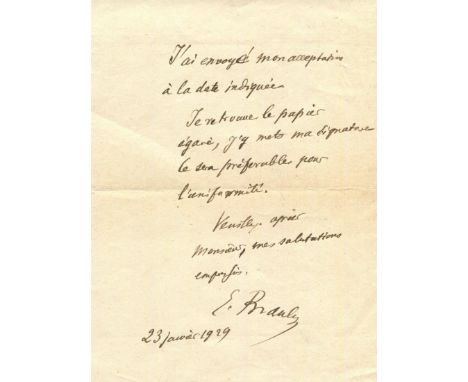 J'ai envoyé mon acceptation
à la date indiquée
Je retrouve le papier
égaré, j'y mets ma signature
ce sera préférable pour
l'uniformité.
Veuillez, agréer
Monsieur, mes salutations
empressées.
E. Branly
23 janvier 1929